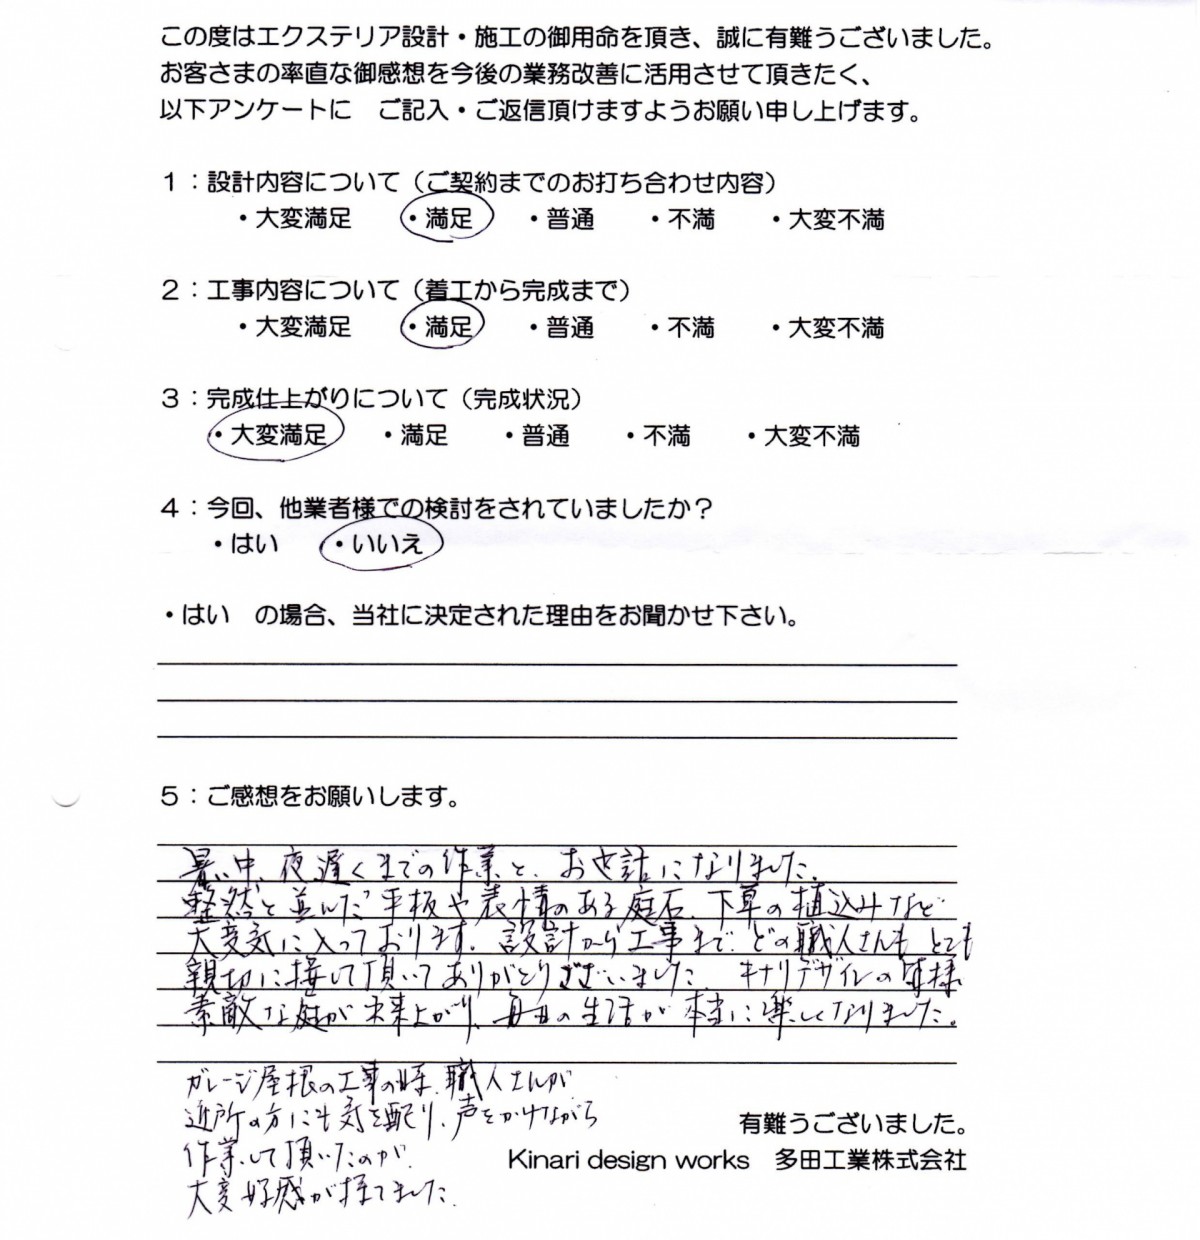 この度はエクステリア設計・施工の御用命を頂き、誠に有難うございました。
お客さまの率直な御感想を今後の業務改善に活用させて頂きたく、
以下アンケートに　ご記入・ご返信頂けますようお願い申し上げます。
1：設計内容について（ご契約までのお打ち合わせ内容）
・大変満足　・満足　・普通　・不満　・大変不満
2：工事内容について（着工から完成まで）
・大変満足　・満足　・普通　・不満　・大変不満
3：完成仕上がりについて（完成状況）
・大変満足　・満足　・普通　・不満　・大変不満
4：今回、他業者様での検討をされていましたか？
・はい　・いいえ
・はい　の場合、当社に決定された理由をお聞かせ下さい。
5：ご感想をお願いします。
暑い中、夜遅くまでの作業と、お世話になりました。
整然と並んだ平板や表情のある庭石、下草の植込みなど
大変気に入っております。設計から工事まで、どの職人さんもとても
親切に接して頂いてありがとうございました。キナリデザインの皆様
素敵な庭が出来上がり、毎日の生活が本当に楽しくなりました。
ガレージ屋根の工事の時、職人さんが
近所の方にも気を配り、声をかけながら
作業して頂いたのが、
大変好感が持てました。
有難うございました。
Kinari design works　多田工業株式会社